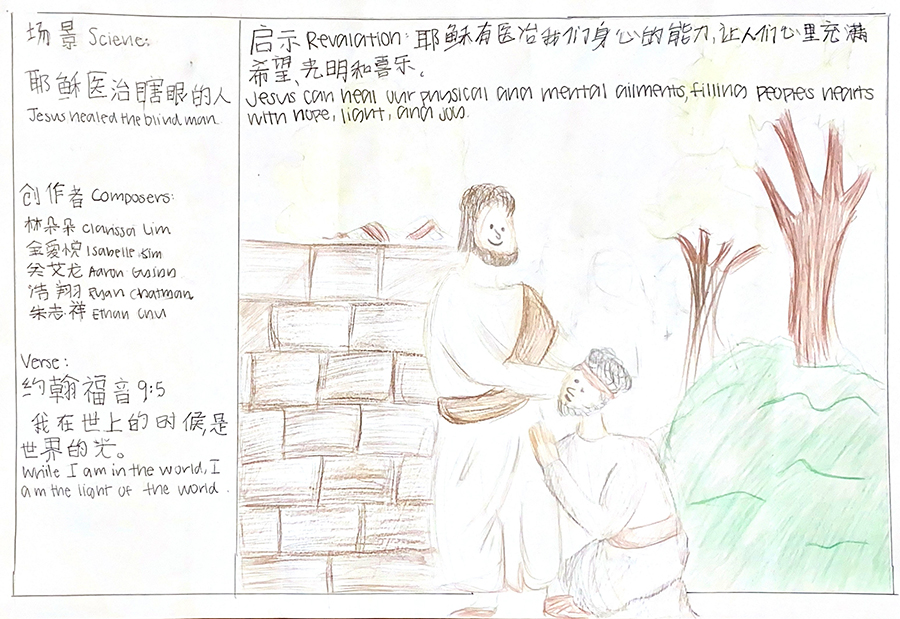 场景 Sciene:
耶稣医治瞎眼的人
Jesus healed the blind man.
创作者 Composers:
林朵朵 Clarissa Lim
金爱悦 Isabelle Kim
艾龙 Aaron
浩翔 Ryan Chatman
朱志祥 Ethan Chu
Verse:
约翰福音 9:5
我在世上的时候,是
世界的光。
While I am in the world, I
am the light of the world.
启示 Revalation: 耶稣有医治我们身心的能力,让人们心里充满
希望、光明和喜乐。
Jesus can heal our physical and mental ailments, filling peoples hearts
with hope, light, and joy.